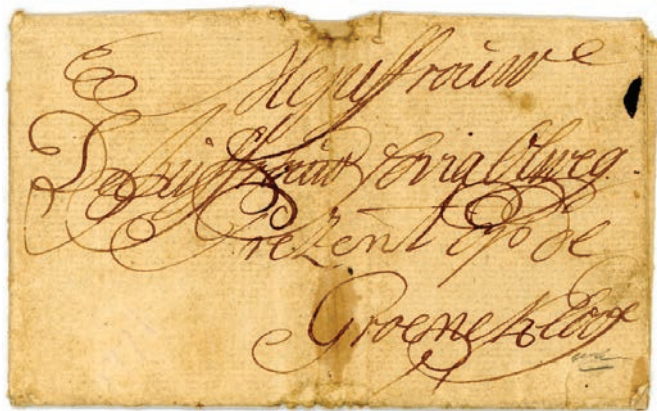 Mejuffrouwe
De Juffrouw Sophia
Prezent op de
Groene Kloof